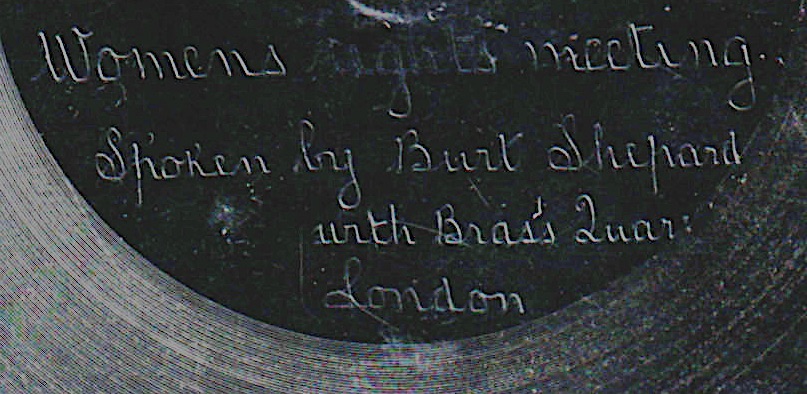 Womens rights meeting..
Spoken by Burt Shepard
with Brass Quar:
London